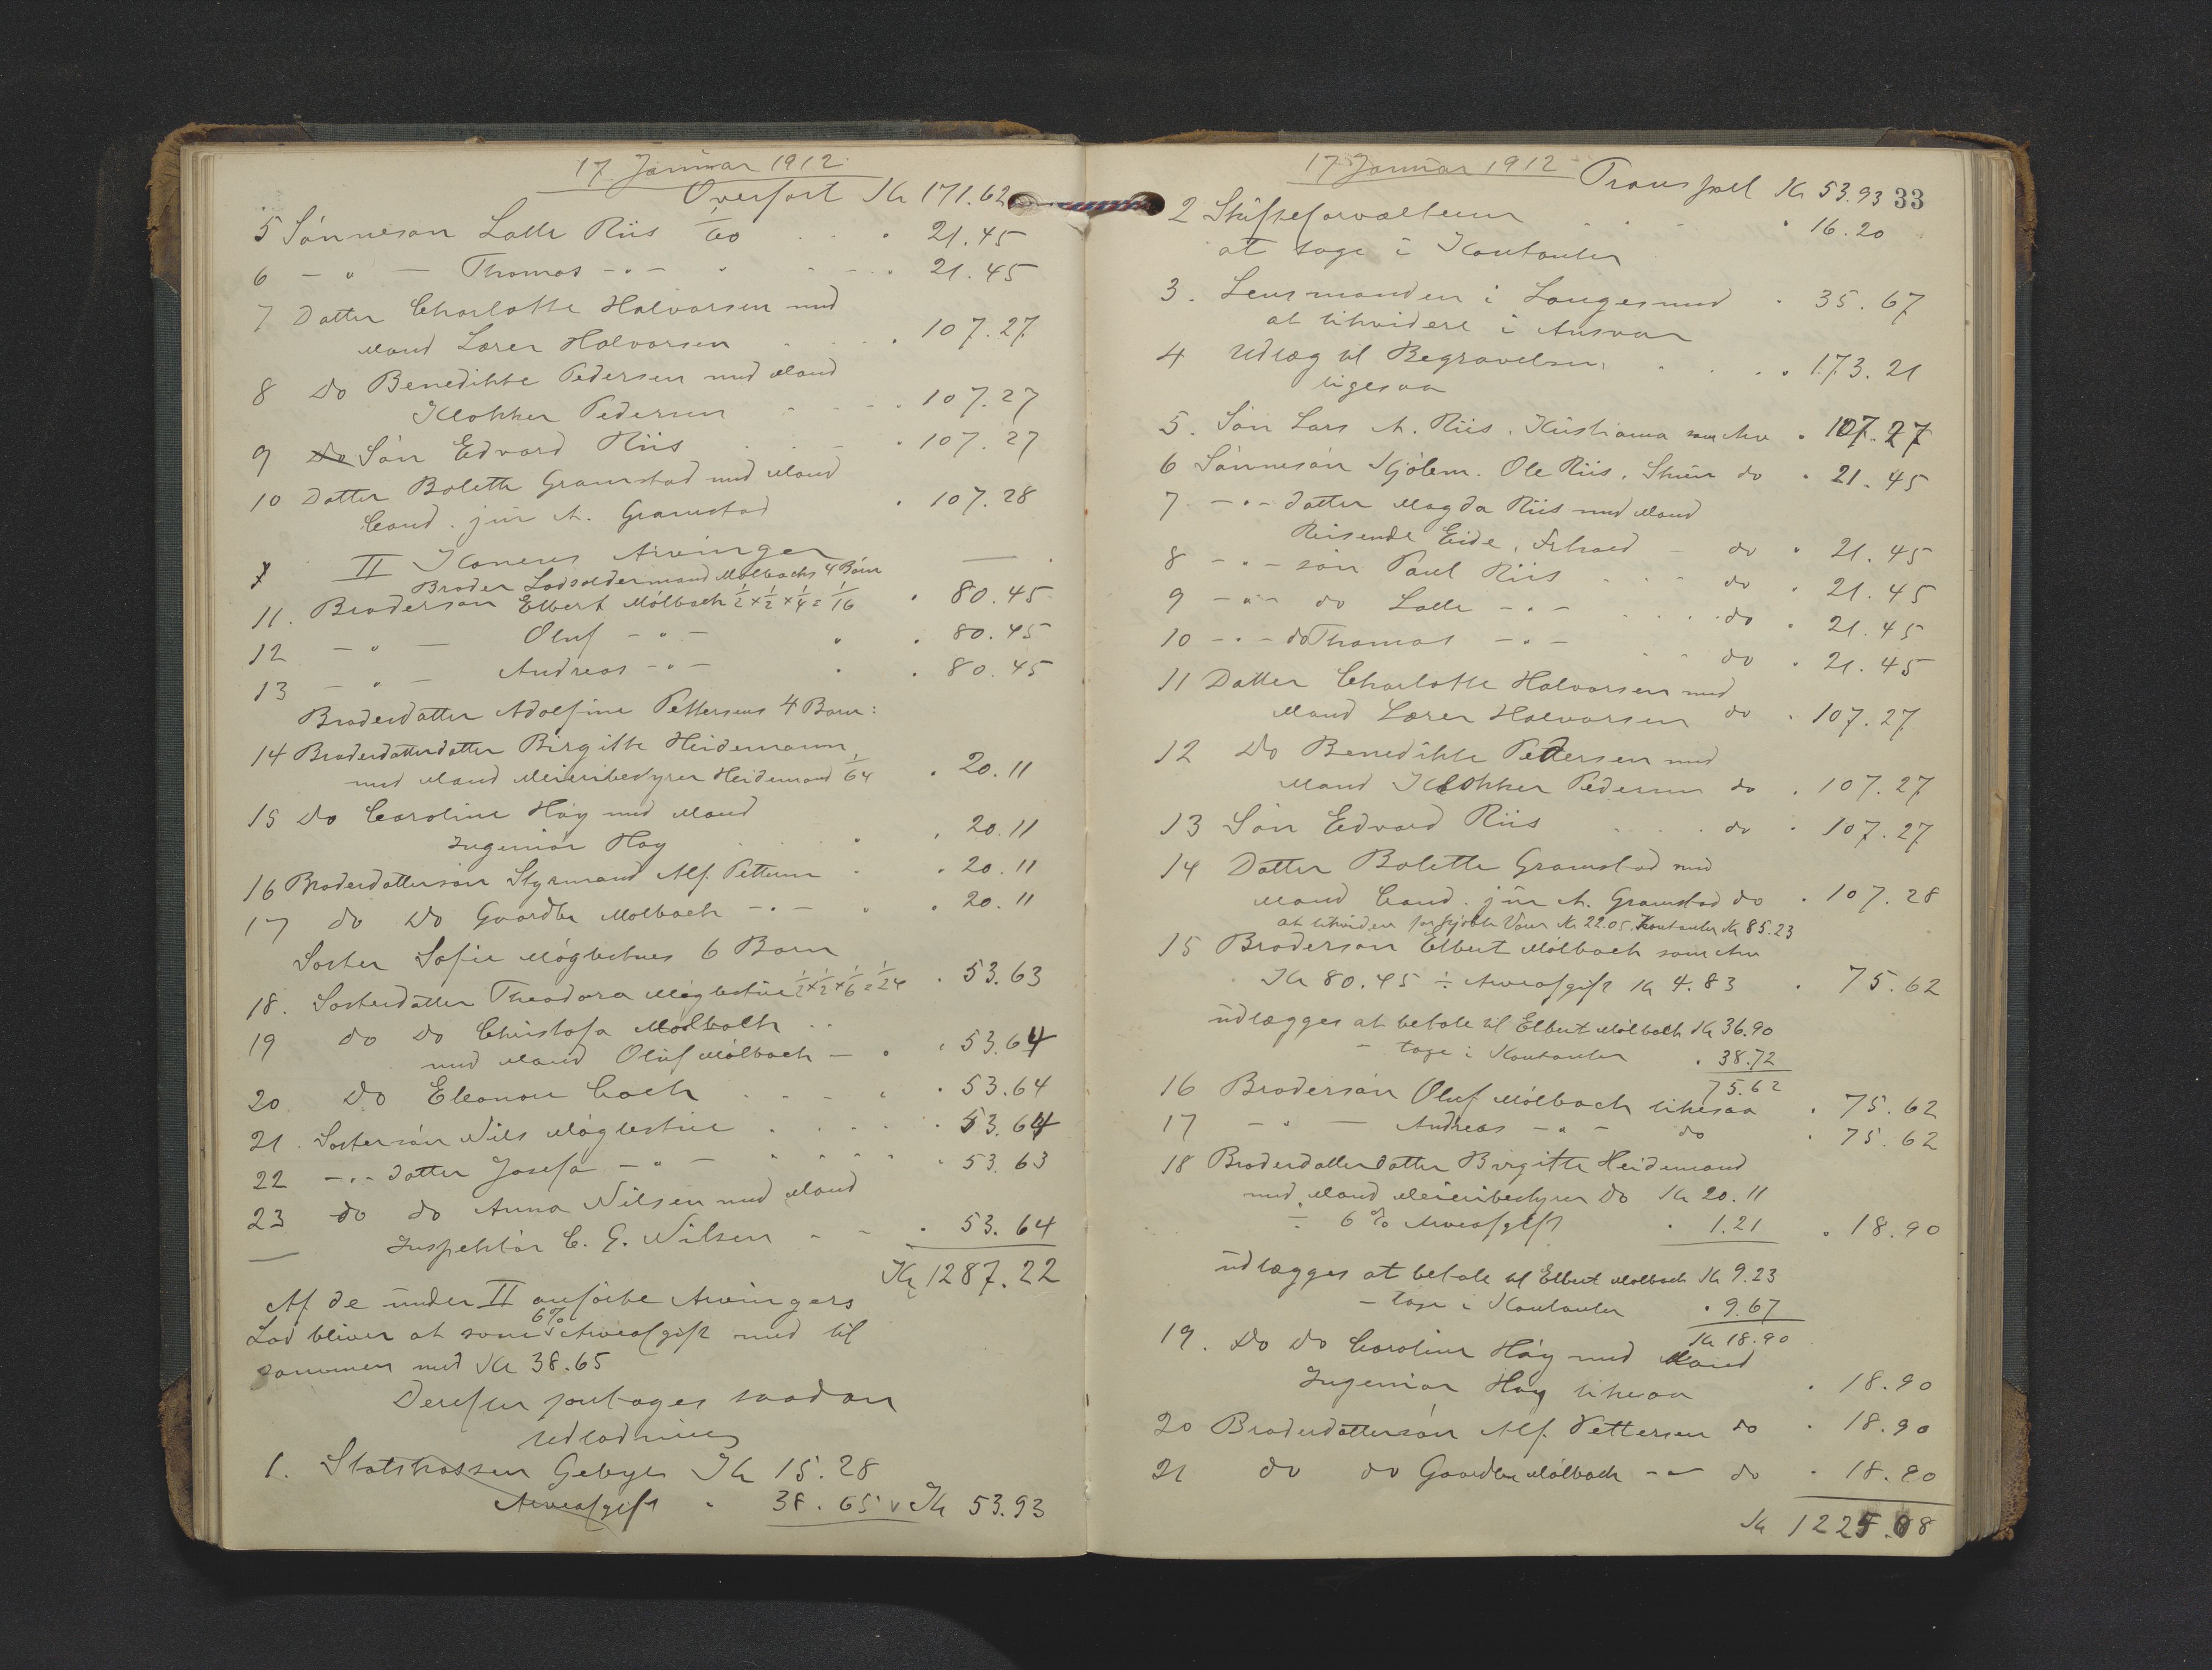 17 Januar 1912
Overført Kr 171.62
5 Sønnesøn Lalle Riis 1/60 " 21.45
6 - " - Thomas - " - " 21.45
7 Datter Charlotte Halvorsen med
Mand Lærer Halvorsen " 107.27
8 Do Benedikte Pedersen med Mand
Klokker Pedersen " 107.27
9 Do Søn Edvard Riis " 107.27
10 Datter Bolette Gramstad med Mand
Cand. jur A. Gramstad " 107.28
II Konens Arvinger
Broder Lodsoldermand Mølbachs 4 Børn
11. Brodersøn Elbert Mølbach 1/2 x 1/2 x 1/4 = 1/16 " 80.45
12 - " - Oluf - " - " " 80.45
13 - " - Andreas - " - " " 80.45
Broderdatter Adolfine Pettersens 4 Børn:
14 Broderdatterdatter Birgitte Heidemann
med Mand Meieribestyrer Heidemand 1/64 " 20.11
15 Do Caroline Høy med Mand
Ingeniør Høy " " 20.11
16 Broderdattersøn Styrmand Alf. Pettersen " 20.11
17 do Do Gaardbr Mølbach - " - " " 20.11
Søster Sofie Møglestues 6 Børn
18. Søsterdatter Theodora Møglestue 1/2 x 1/2 x 1/6 = 1/24 " 53.63
19 do Do Christofa Mølbach
med Mand Oluf Mølbach - " " 53.64
20 Do Eleonore Coch " " 53.64
21. Søstersøn Nils Møglestue " 53.64
22 - " - datter Josefa - " - " 53.63
23 do do Anna Nilsen med Mand
Inspektør C. G. Nilsen - - " 53.64
Kr 1287.22
Af de under II anførte Arvingers
Lod bliver at svare 6% Arveafgift med til
sammen med Kr 38.65
Derefter foretages saadan
Udlodning
1. Statskassen Gebyr Kr 15.28
Arveafgift " 38.65 v Kr 53.93
17 Januar 1912
Transport Kr 53.93 33
2 Skifteforvalteren " 16.20
at tage i Kontanter
3. Lensmanden i Langesund " 35.67
at likvidere i Ansvar
4 Udlæg til Begravelsen " 173.21
ligesaa
5. Søn Lars A. Riis. Kristiania som Arv " 107.27
6 Sønnesøn Kjølem. Ole Riis, Skien do " 21.45
7 - " - datter Magda Riis med Mand
Reisende Eide, - do " 21.45
8 - " - søn Paul Riis do " 21.45
9 - " - do Lalle - " - do " 21.45
10 - " - do Thomas - " - do " 21.45
11 Datter Charlotte Halvorsen med
Mand Lærer Halvorsen do " 107.27
12 Do Benedikte Pedersen med
Mand Klokker Pedersen do " 107.27
13 Søn Edvard Riis do " 107.27
14 Datter Bolette Gramstad med
Mand Cand. jur A. Gramstad do " 107.28
at likvidere for kjøbte Varer Kr 22.05. Kontanter Kr 85.23
15 Brodersøn Elbert Mølbach som Arv
Kr 80.45 ÷ Arveafgift Kr 4.83 " 75.62
udlægges at betale til Elbert Mølbach Kr 36.90
- tage i Kontanter " 38.72
75.62
16 Brodersøn Oluf Mølbach likesaa " 75.62
17 - " - Andreas - " - do " 75.62
18 Broderdatterdatter Birgitte Heidemand
med Mand Meieribestyrer Do Kr 20.11
÷ 6% Arveafgift " 1.21 " 18.90
udlægges at betale til Elbert Mølbach Kr 9.23
- tage i Kontanter " 9.67
Kr 18.90
19. Do Do Caroline Høy med Mand
Ingeniør Høy likesaa " 18.90
20 Broderdattersøn Alf. Pettersen do " 18.90
21 do do Gaardbr Mølbach - " - do " 18.90
Kr 1225.08